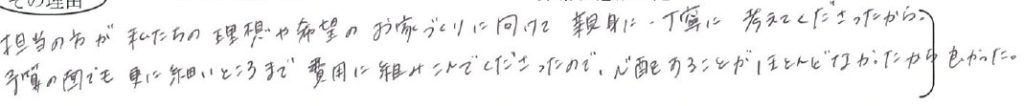 その理由
担当の方が私たちの理想や希望のお家づくりに向けて親身に・丁寧に考えてくださったから。
予算の面でも更に細いところまで費用に組みこんでくださったので、心配することがほとんどなかったから良かった。